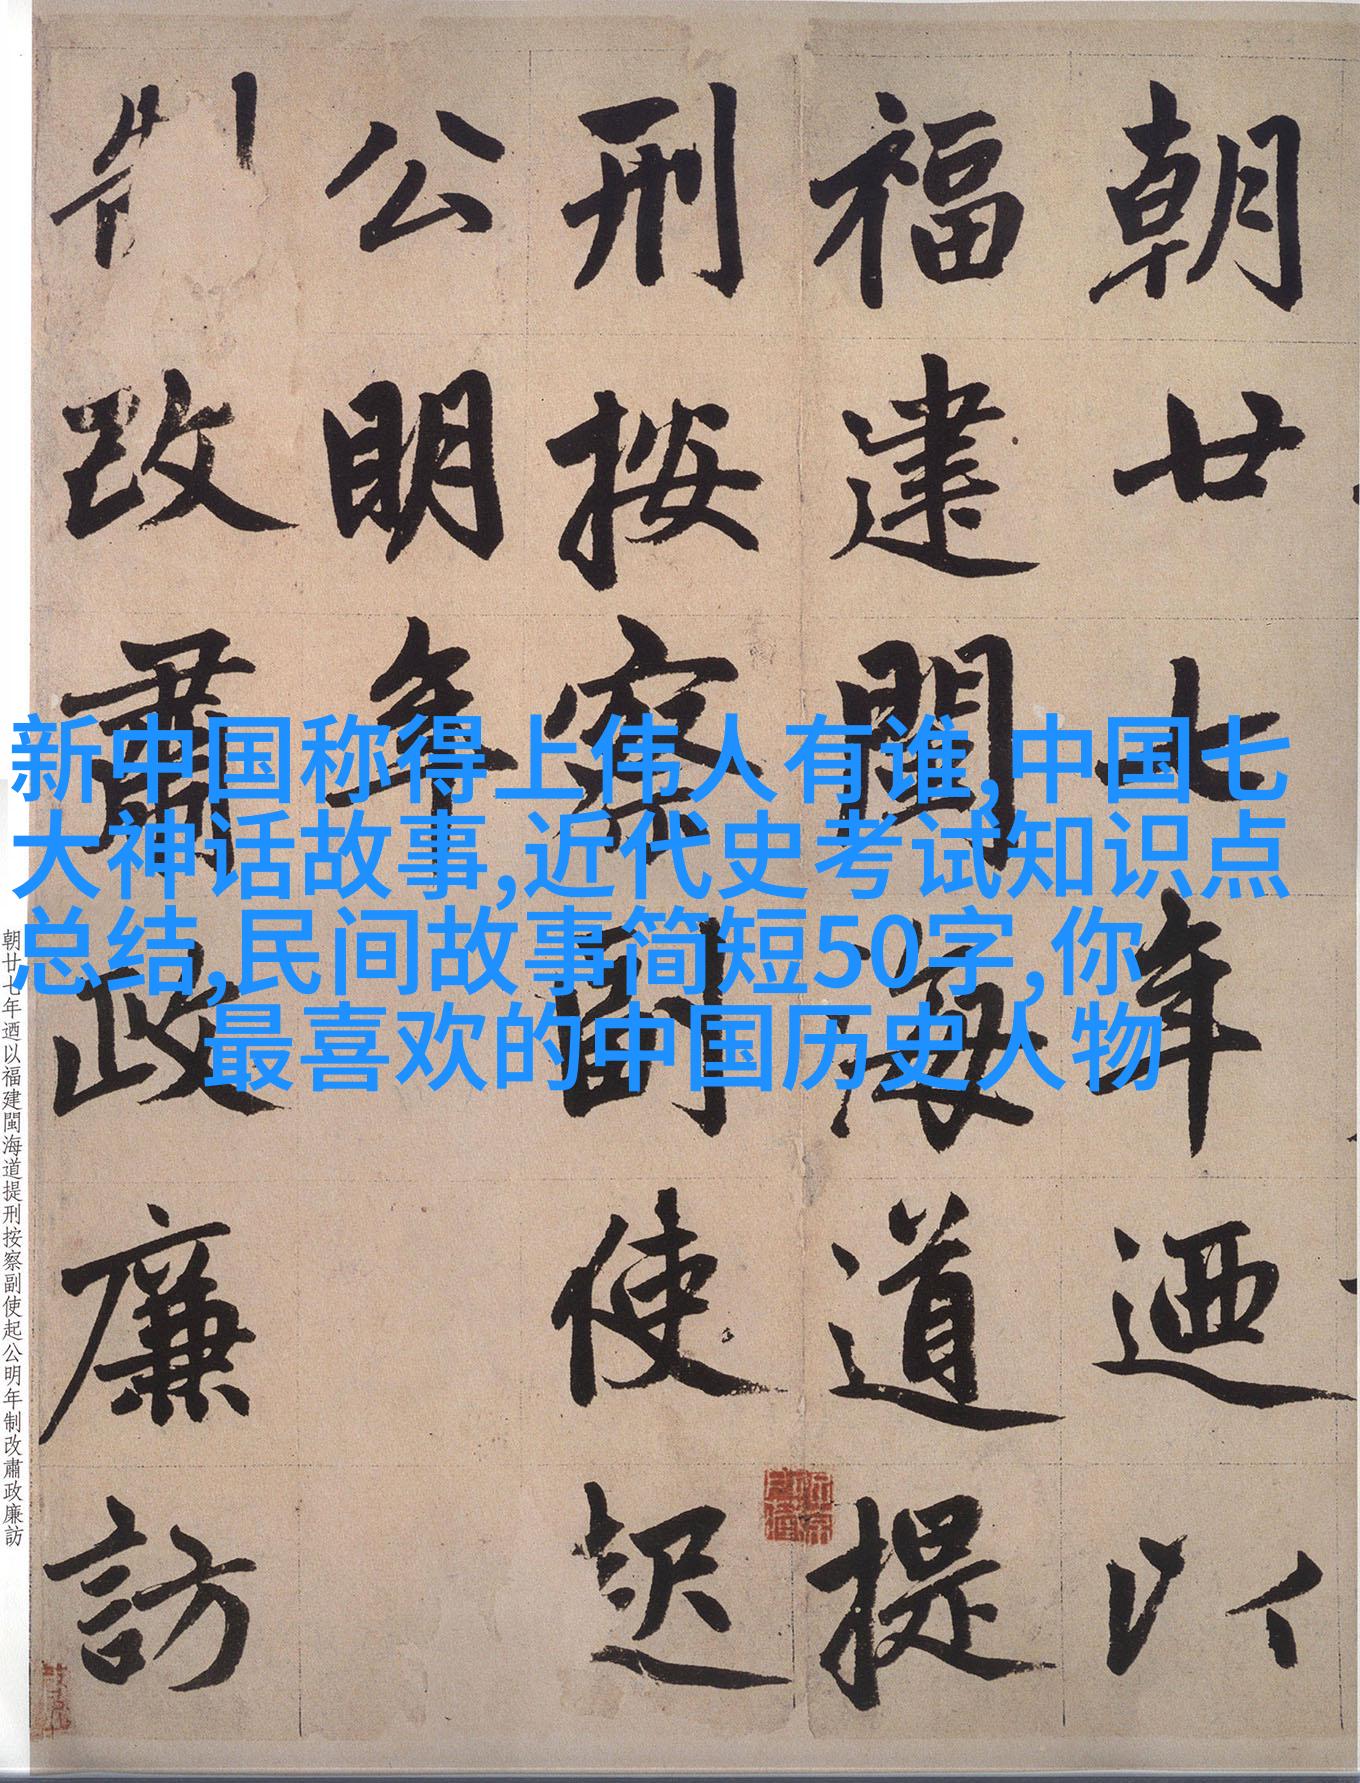 朝廿七年迺以
福建閩海道提
刑按察副使起
公明年
制改肅政廉訪
新中国称得上伟人有谁,中国七
大神话故事,近代史考试知识点
总结,民间故事简短50字,你
最喜欢的中国历史人物
朝廿七年迺以福建閩海道提刑按察副使起公明年制改肅政廉訪